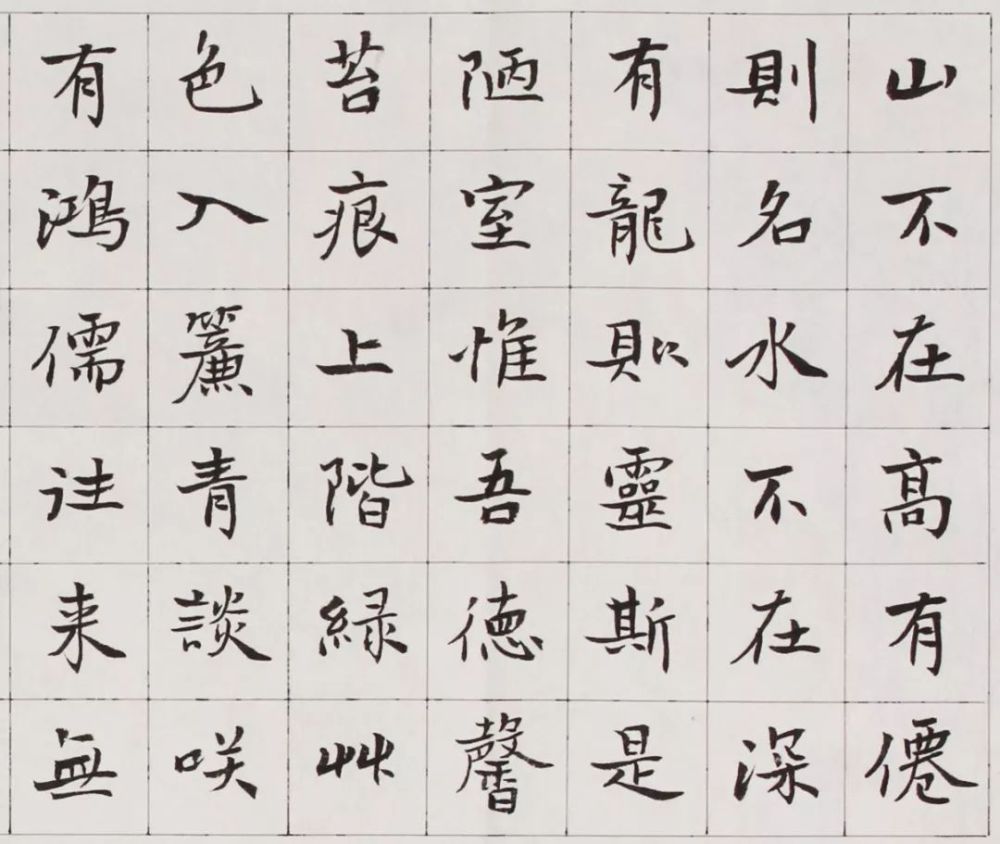 山不在髙有僊
則名水不在深
有龍則靈斯是
陋室惟吾徳馨
苔痕上階緑艸
色入簾青談咲
有鴻儒往来無